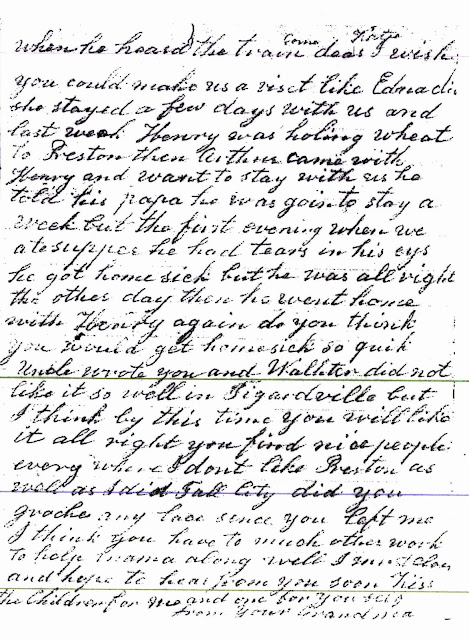 Come Kirtje
when he heard the train dear I wish
you could make us a visit like Edna did
she stayed a few days with us and
last week Henry was holing wheat
to Preston then Arthur came with
Henry and want to stay with us he
told his papa he was goin to stay a
week but the first evening when we
ate supper he had tears in his eys
he got home sick but he was all right
the other day then he went home
with Henry again do you think
you would get homesick so quik
Uncle wrote you and Wallter did not
like it so well in Sigardville but
I think by this time you will like
it all right you find nice people
every where I dont like Preston as
well as I did Fall City did you
groche any lace since you left me
I think you have to much other work
to help mama along well I must close
and hope to hear from you soon Kiss
the Children for me and one for you self
from your Grandma